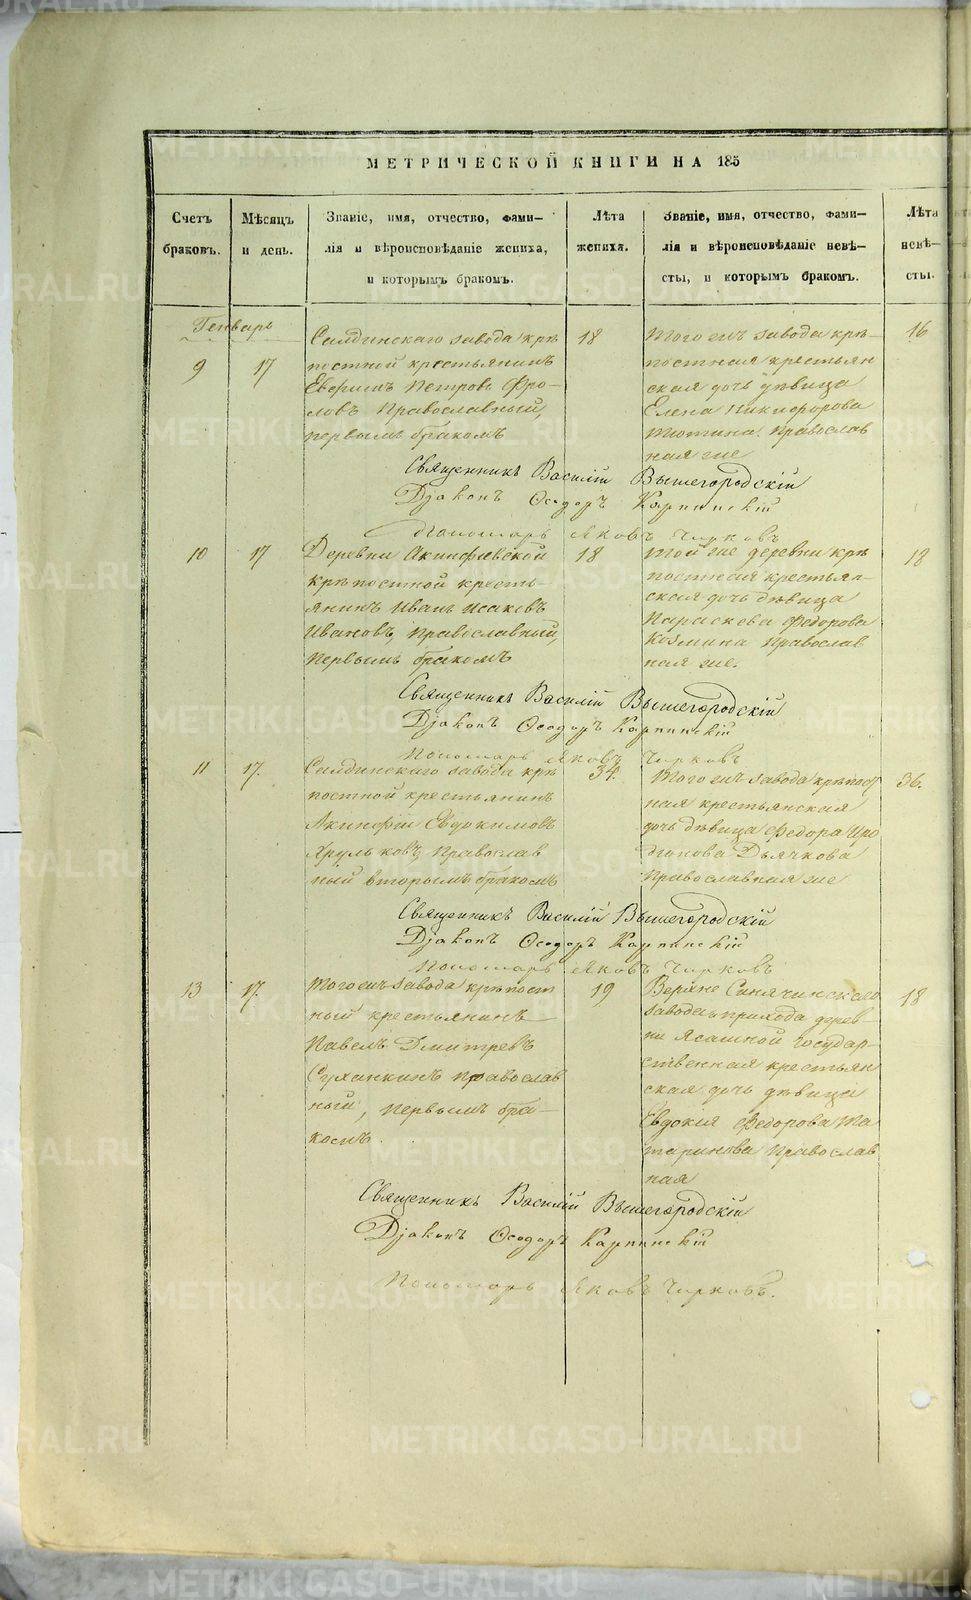 МЕТРИЧЕСКОЙ КНИГИ НА 185
Счетъ браковъ.
Мѣсяцъ и день.
Званіе, имя, отчество, фами-
лія и вѣроисповѣданіе жениха,
и которымъ бракомъ.
Лѣта жениха.
Званіе, имя, отчество, фами-
лія и вѣроисповѣданіе невѣ-
сты, и которымъ бракомъ.
Лѣта невѣ-
сты.
Генварь
9
17
Салдинскаго завода крѣ
постной крестьянинъ
Евфимъ Петровъ Фро-
ловъ Православный,
первымъ бракомъ
18
Тогоежъ завода крѣ-
постная крестьян
ская дочь дѣвица
Елена Никифорова
Тютина. Православ
ная же
16
Священникъ Василій Вышегородскій
Діаконъ Ѳеодоръ Карпинскій
Пономарь Яковъ Чирковъ
10
17
Деревни Акинфіевской
крѣпостной кресть-
янинъ Иванъ Исаковъ
Ивановъ, Православный,
Первымъ бракомъ
18
Той же деревни крѣ
постная крестьян-
ская дочь дѣвица
Параскева Федорова
Козмина Православ
ная же.
18
Священникъ Василій Вышегородскій
Діаконъ Ѳеодоръ Карпинскій
Пономарь Яковъ Чирковъ
11
17.
Салдинскаго завода крѣ
постной крестьянинъ
Акинфій Евдокимовъ
Хрульковъ, Православ
ный вторымъ бракомъ
34.
Тогоежъ завода крѣпост
ная крестьянская
дочь дѣвица Федора Иро
діонова Дьячкова
Православная же
36.
Священникъ Василій Вышегородскій
Діаконъ Ѳеодоръ Карпинскій
Пономарь Яковъ Чирковъ
13
17.
Тогоежъ завода крѣпост
ный крестьянинъ
Павелъ Дмитревъ
Суханкинъ Православ
ный, первымъ бра-
комъ.
19
Верхне Синячихинскаго
завода прихода дерев-
ни Ясашной Государ-
ственная крестьян
ская дочь дѣвица
Евдокія Федорова Та
таринова Православ
ная
18
Священникъ Василій Вышегородскій
Діаконъ Ѳеодоръ Карпинскій
Пономарь Яковъ Чирковъ.
METRIKI.GASO-URAL.RU